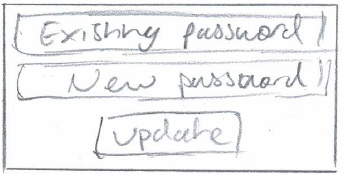 Existing password
New password
update